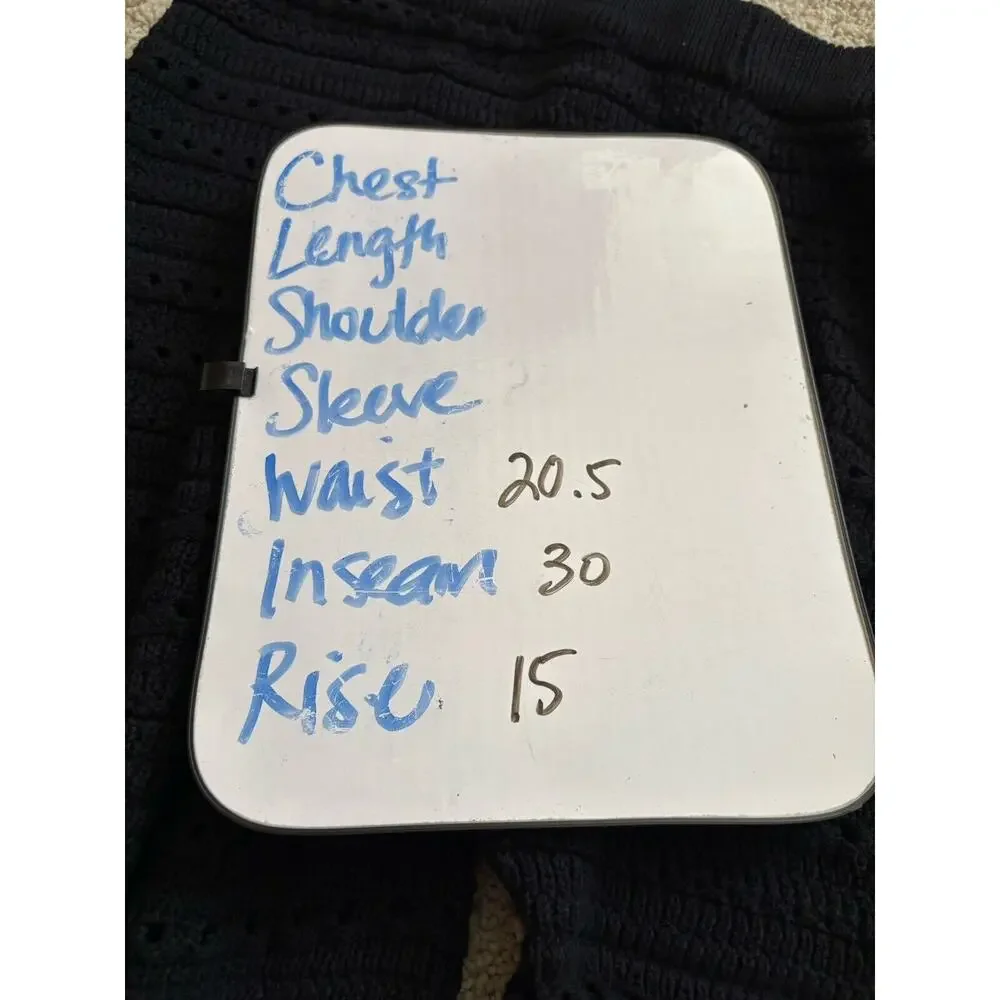 Chest
Length
Shoulder
Sleeve
Waist 20.5
Inseam 30
Rise 15